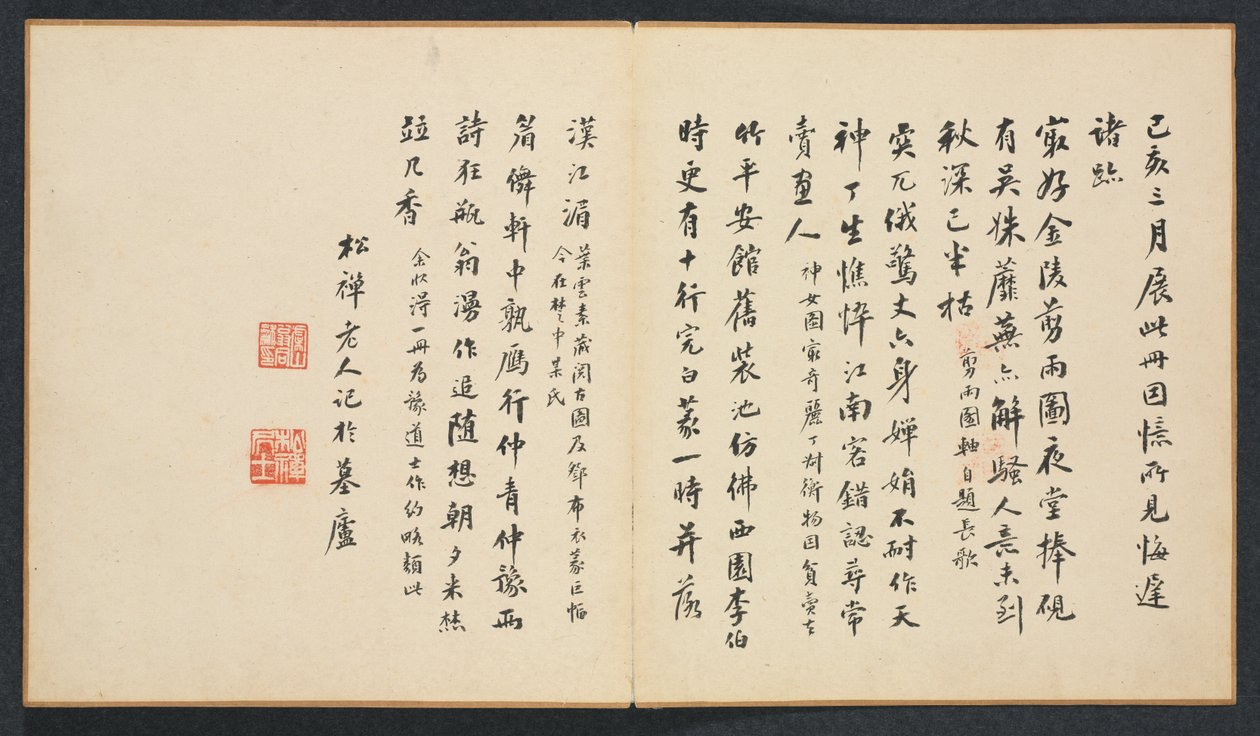 己亥三月展此冊因憶所見悔遲
諸跡
最好金陵剪雨圖夜堂捧硯
有吳姝蘼蕪亦解騷人意未到
秋深已半枯 剪雨圖軸自題長歌
突兀俄驚丈六身嬋娟不耐作天
神丁生憔悴江南客錯認尋常
賣畫人 神女圖最奇麗丁尉衡物因貧賣去
竹平安館舊裝池仿佛西園李伯
時更有十行完白篆一時并落
漢江湄 葉雲素藏閱古圖及鄧布衣篆巨幅
今在楚中某氏
眉儛軒中孰雁行仲青仲豫兩
詩狂瓶翁漫作追隨想朝夕米㷊
並几香 余收得一冊為豫道士作約略類此
松禪老人記於墓廬
虞山翁同龢印
松禪居士